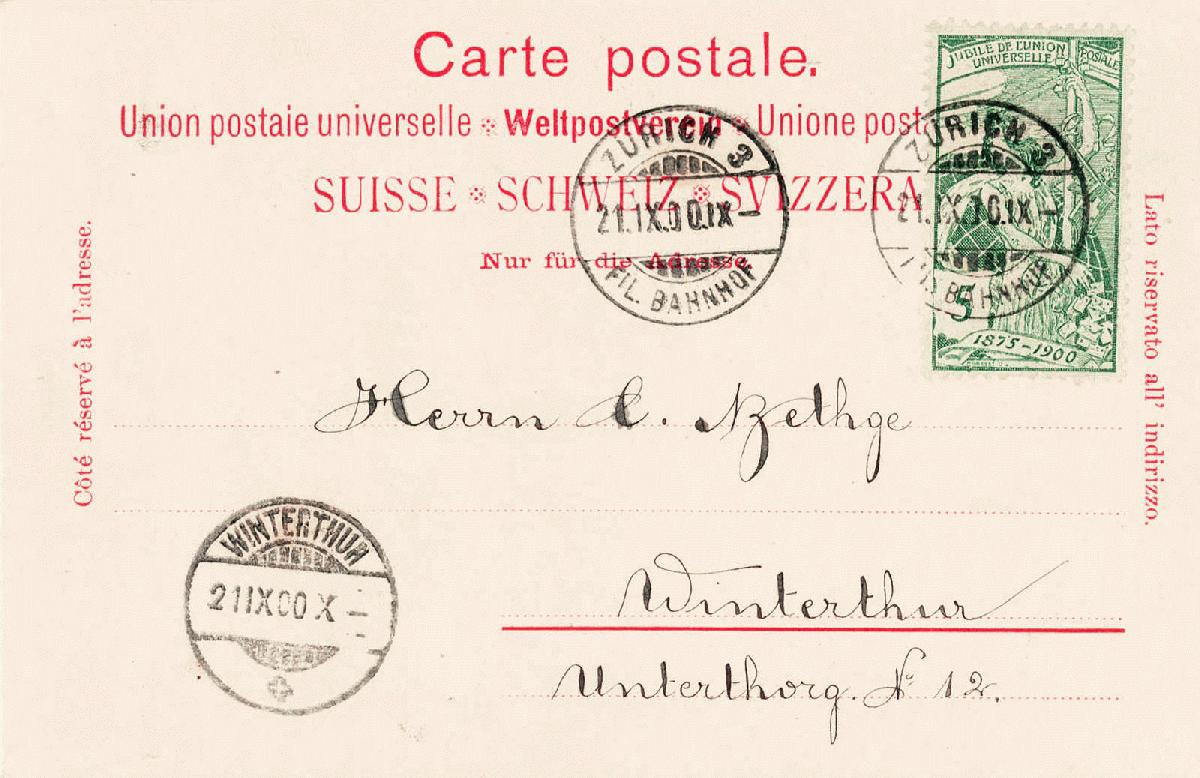 Carte postale.
JUBILÉ DE L'UNION POSTALE
UNIVERSELLE
Union postale universelle Weltpostverein Unione post
ZÜRICH 3
ZÜRICH 3
SUISSE SCHWEIZ SVIZZERA
21.IX.00.IX–
21.IX.00.IX–
Nur für die Adresse.
FIL. BAHNHOF
FIL. BAHNHOF
5
1875–1900
Côté réservé à l'adresse.
Lato riservato all' indirizzo.
Herrn C.
WINTERTHUR
21 IX 00 X –
Winterthur
Unterthorg. No 12.